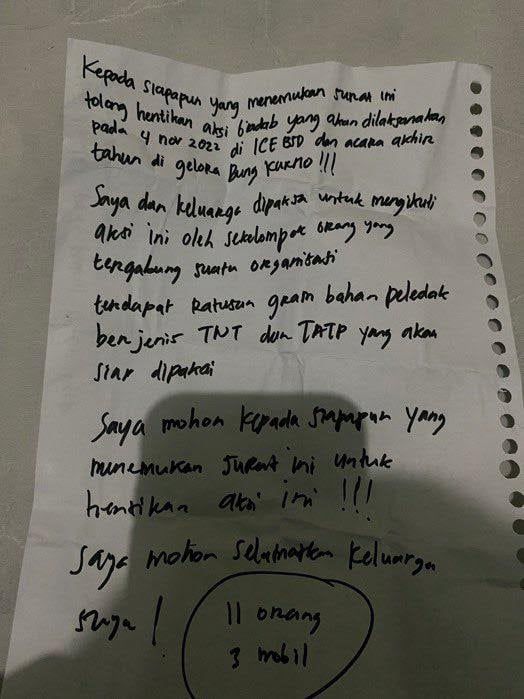 Kepada siapapun yang menemukan surat ini
tolong hentikan aksi biadab yang akan dilaksanakan
pada 4 nov 2022 di ICE BSD dan acara akhir
tahun di gelora Bung Karno !!!
Saya dan keluarga dipaksa untuk mengikuti
aksi ini oleh sekelompok orang yang
tergabung suatu organisasi
terdapat ratusan gram bahan peledak
berjenis TNT dan TATP yang akan
siap dipakai
Saya mohon kepada siapapun yang
menemukan surat ini untuk
hentikan aksi ini !!!
Saya mohon selamatkan keluarga
saya !
11 orang
3 mobil